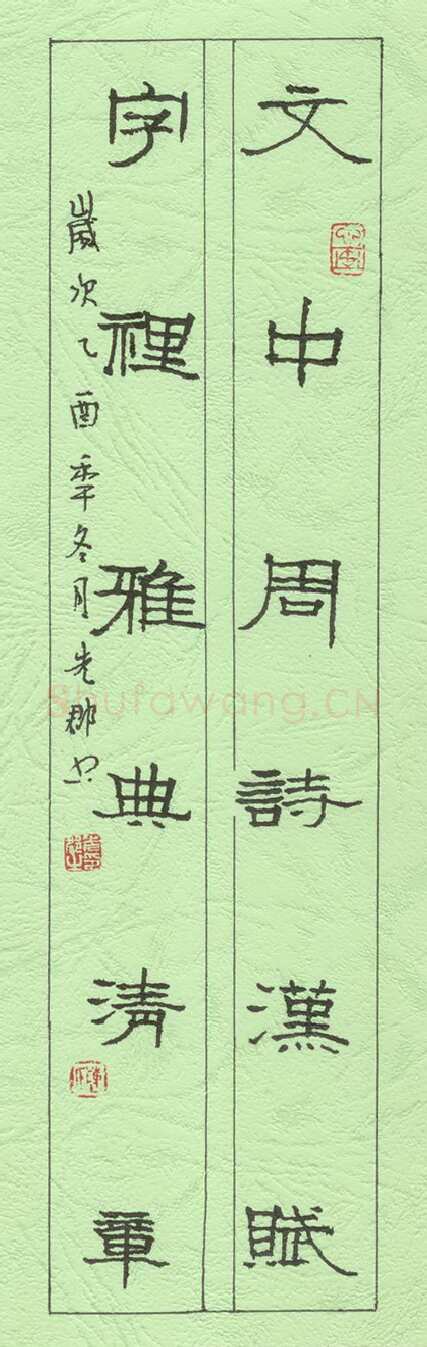 文中周詩漢賦
字裡雅典清章
歲次乙酉年冬月先郡书
Shufawang.CN